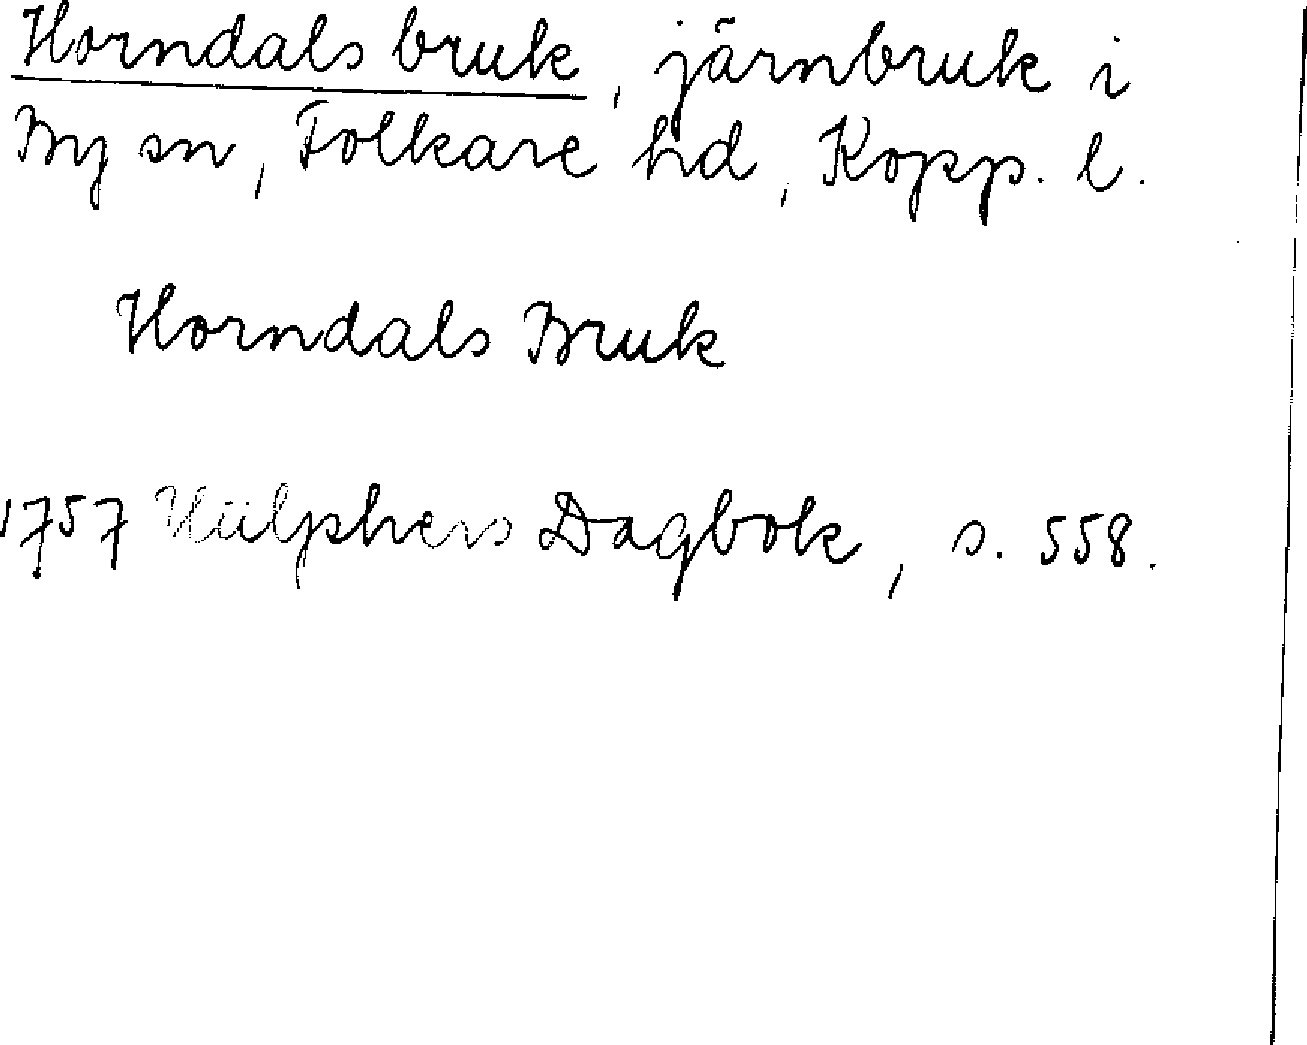 Horndals bruk, järnbruk i
By sn, Folkare hd, Kopp. l.
Horndals Bruk
1757 Hülphers Dagbok, s. 558.